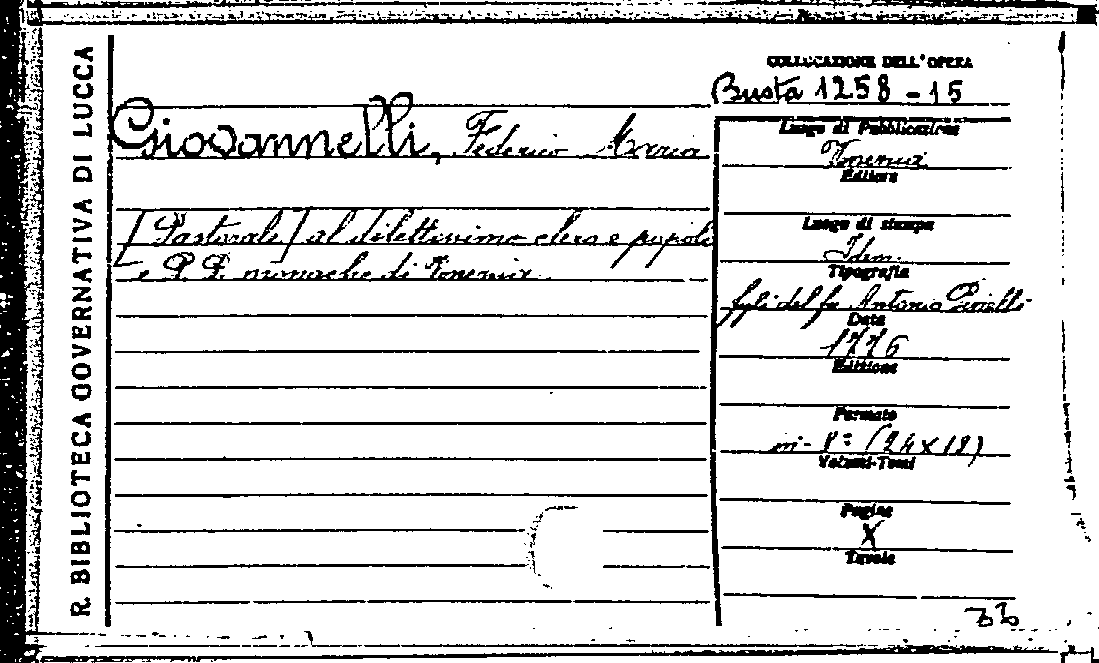 R. BIBLIOTECA GOVERNATIVA DI LUCCA
COLLOCAZIONE DELL'OPERA
Busta 1258 - 15
Giovannelli, Federico Maria
[Pastorale] al dilettissimo clero e popolo
e P. P. monache di Venezia
Luogo di Pubblicazione
Venezia
Editore
Luogo di stampa
Idem
Tipografia
figli del fu Antonio Pinelli
Data
1776
Edizione
Formato
in-8° (24x18)
Volumi-Tomi
Pagine
X
Tavole